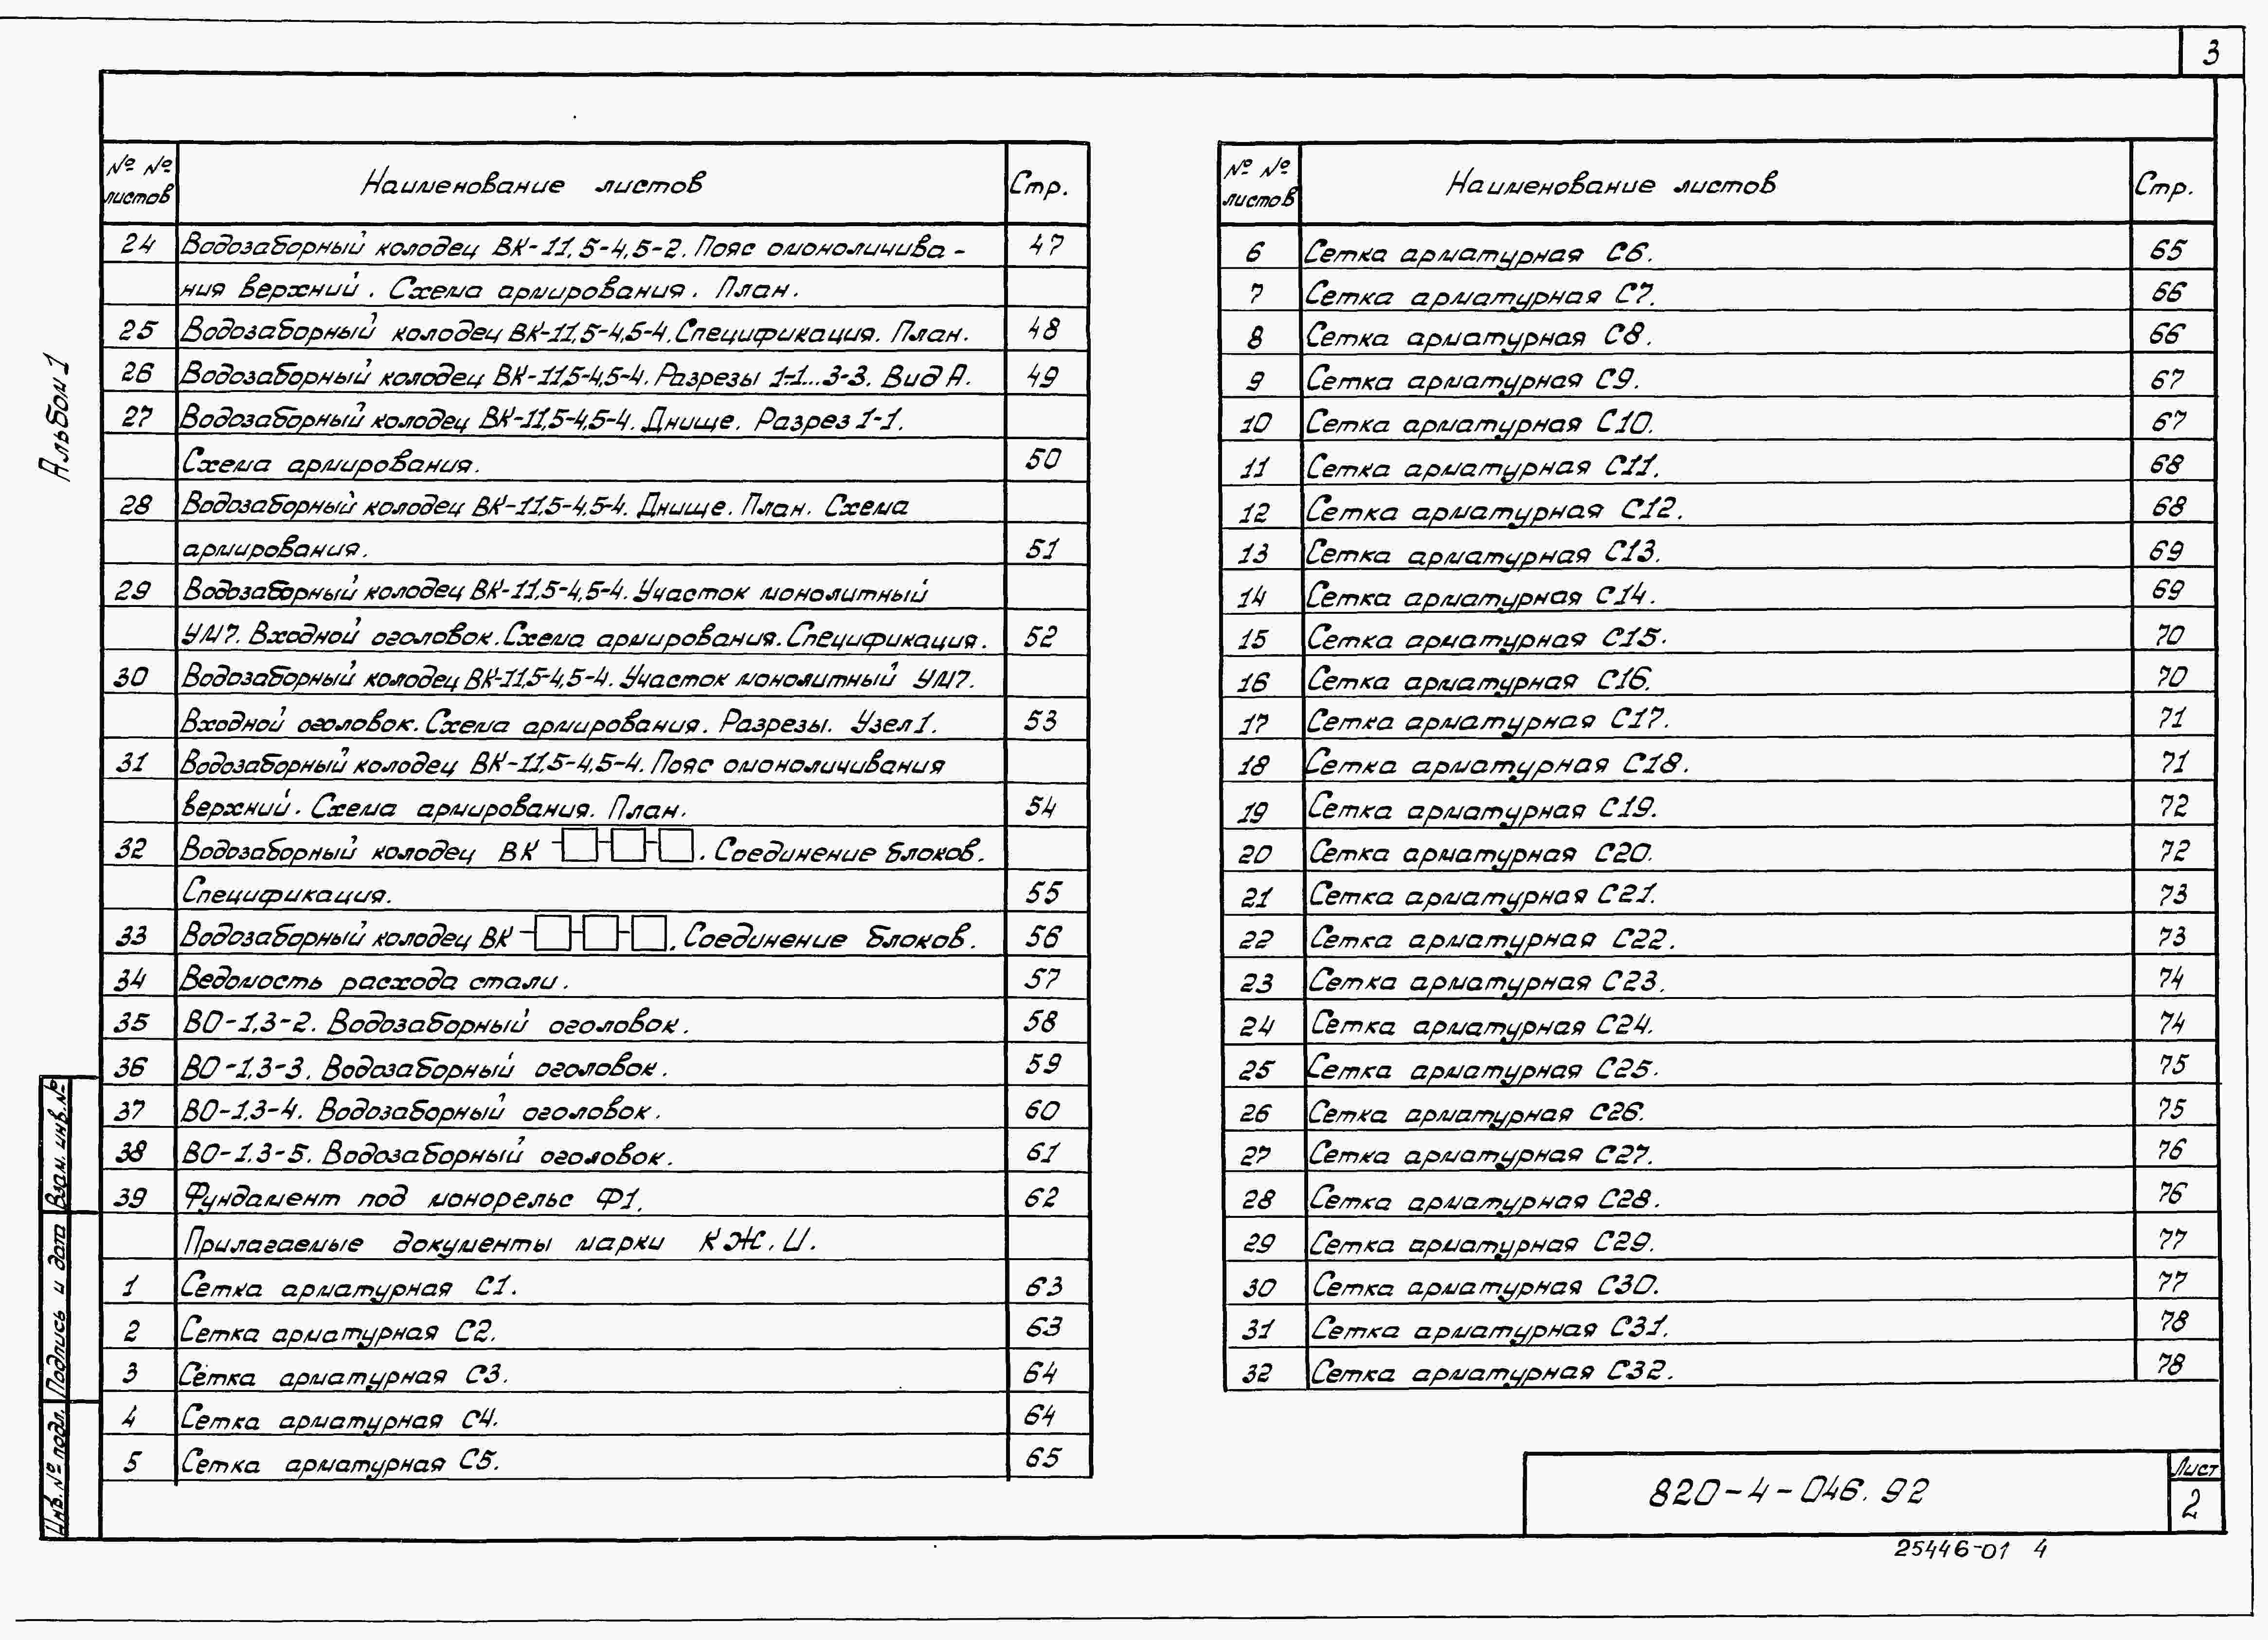 3
Альбом 1
№ № листов Наименование листов Стр.
24 Водозаборный колодец ВК-11,5-4,5-2. Пояс омоноличива- 47
ния верхний. Схема армирования. План.
25 Водозаборный колодец ВК-11,5-4,5-4. Спецификация. План. 48
26 Водозаборный колодец ВК-11,5-4,5-4. Разрезы 1-1...3-3. Вид А. 49
27 Водозаборный колодец ВК-11,5-4,5-4. Днище. Разрез 1-1.
Схема армирования. 50
28 Водозаборный колодец ВК-11,5-4,5-4. Днище. План. Схема
армирования. 51
29 Водозаборный колодец ВК-11,5-4,5-4. Участок монолитный
УМ7. Входной оголовок. Схема армирования. Спецификация. 52
30 Водозаборный колодец ВК-11,5-4,5-4. Участок монолитный УМ7.
Входной оголовок. Схема армирования. Разрезы. Узел 1. 53
31 Водозаборный колодец ВК-11,5-4,5-4. Пояс омоноличивания
верхний. Схема армирования. План. 54
32 Водозаборный колодец ВК -□-□-□. Соединение блоков.
Спецификация. 55
33 Водозаборный колодец ВК -□-□-□. Соединение блоков. 56
34 Ведомость расхода стали. 57
35 ВО-1,3-2. Водозаборный оголовок. 58
36 ВО-1,3-3. Водозаборный оголовок. 59
37 ВО-1,3-4. Водозаборный оголовок. 60
38 ВО-1,3-5. Водозаборный оголовок. 61
39 Фундамент под монорельс Ф1. 62
Прилагаемые документы марки КЖ.И.
1 Сетка арматурная С1. 63
2 Сетка арматурная С2. 63
3 Сетка арматурная С3. 64
4 Сетка арматурная С4. 64
5 Сетка арматурная С5. 65
№ № листов Наименование листов Стр.
6 Сетка арматурная С6. 65
7 Сетка арматурная С7. 66
8 Сетка арматурная С8. 66
9 Сетка арматурная С9. 67
10 Сетка арматурная С10. 67
11 Сетка арматурная С11. 68
12 Сетка арматурная С12. 68
13 Сетка арматурная С13. 69
14 Сетка арматурная С14. 69
15 Сетка арматурная С15. 70
16 Сетка арматурная С16. 70
17 Сетка арматурная С17. 71
18 Сетка арматурная С18. 71
19 Сетка арматурная С19. 72
20 Сетка арматурная С20. 72
21 Сетка арматурная С21. 73
22 Сетка арматурная С22. 73
23 Сетка арматурная С23. 74
24 Сетка арматурная С24. 74
25 Сетка арматурная С25. 75
26 Сетка арматурная С26. 75
27 Сетка арматурная С27. 76
28 Сетка арматурная С28. 76
29 Сетка арматурная С29. 77
30 Сетка арматурная С30. 77
31 Сетка арматурная С31. 78
32 Сетка арматурная С32. 78
Взам. инв. №
Подпись и дата
Инв. № подл.
820-4-046.92
Лист
2
25446-01 4